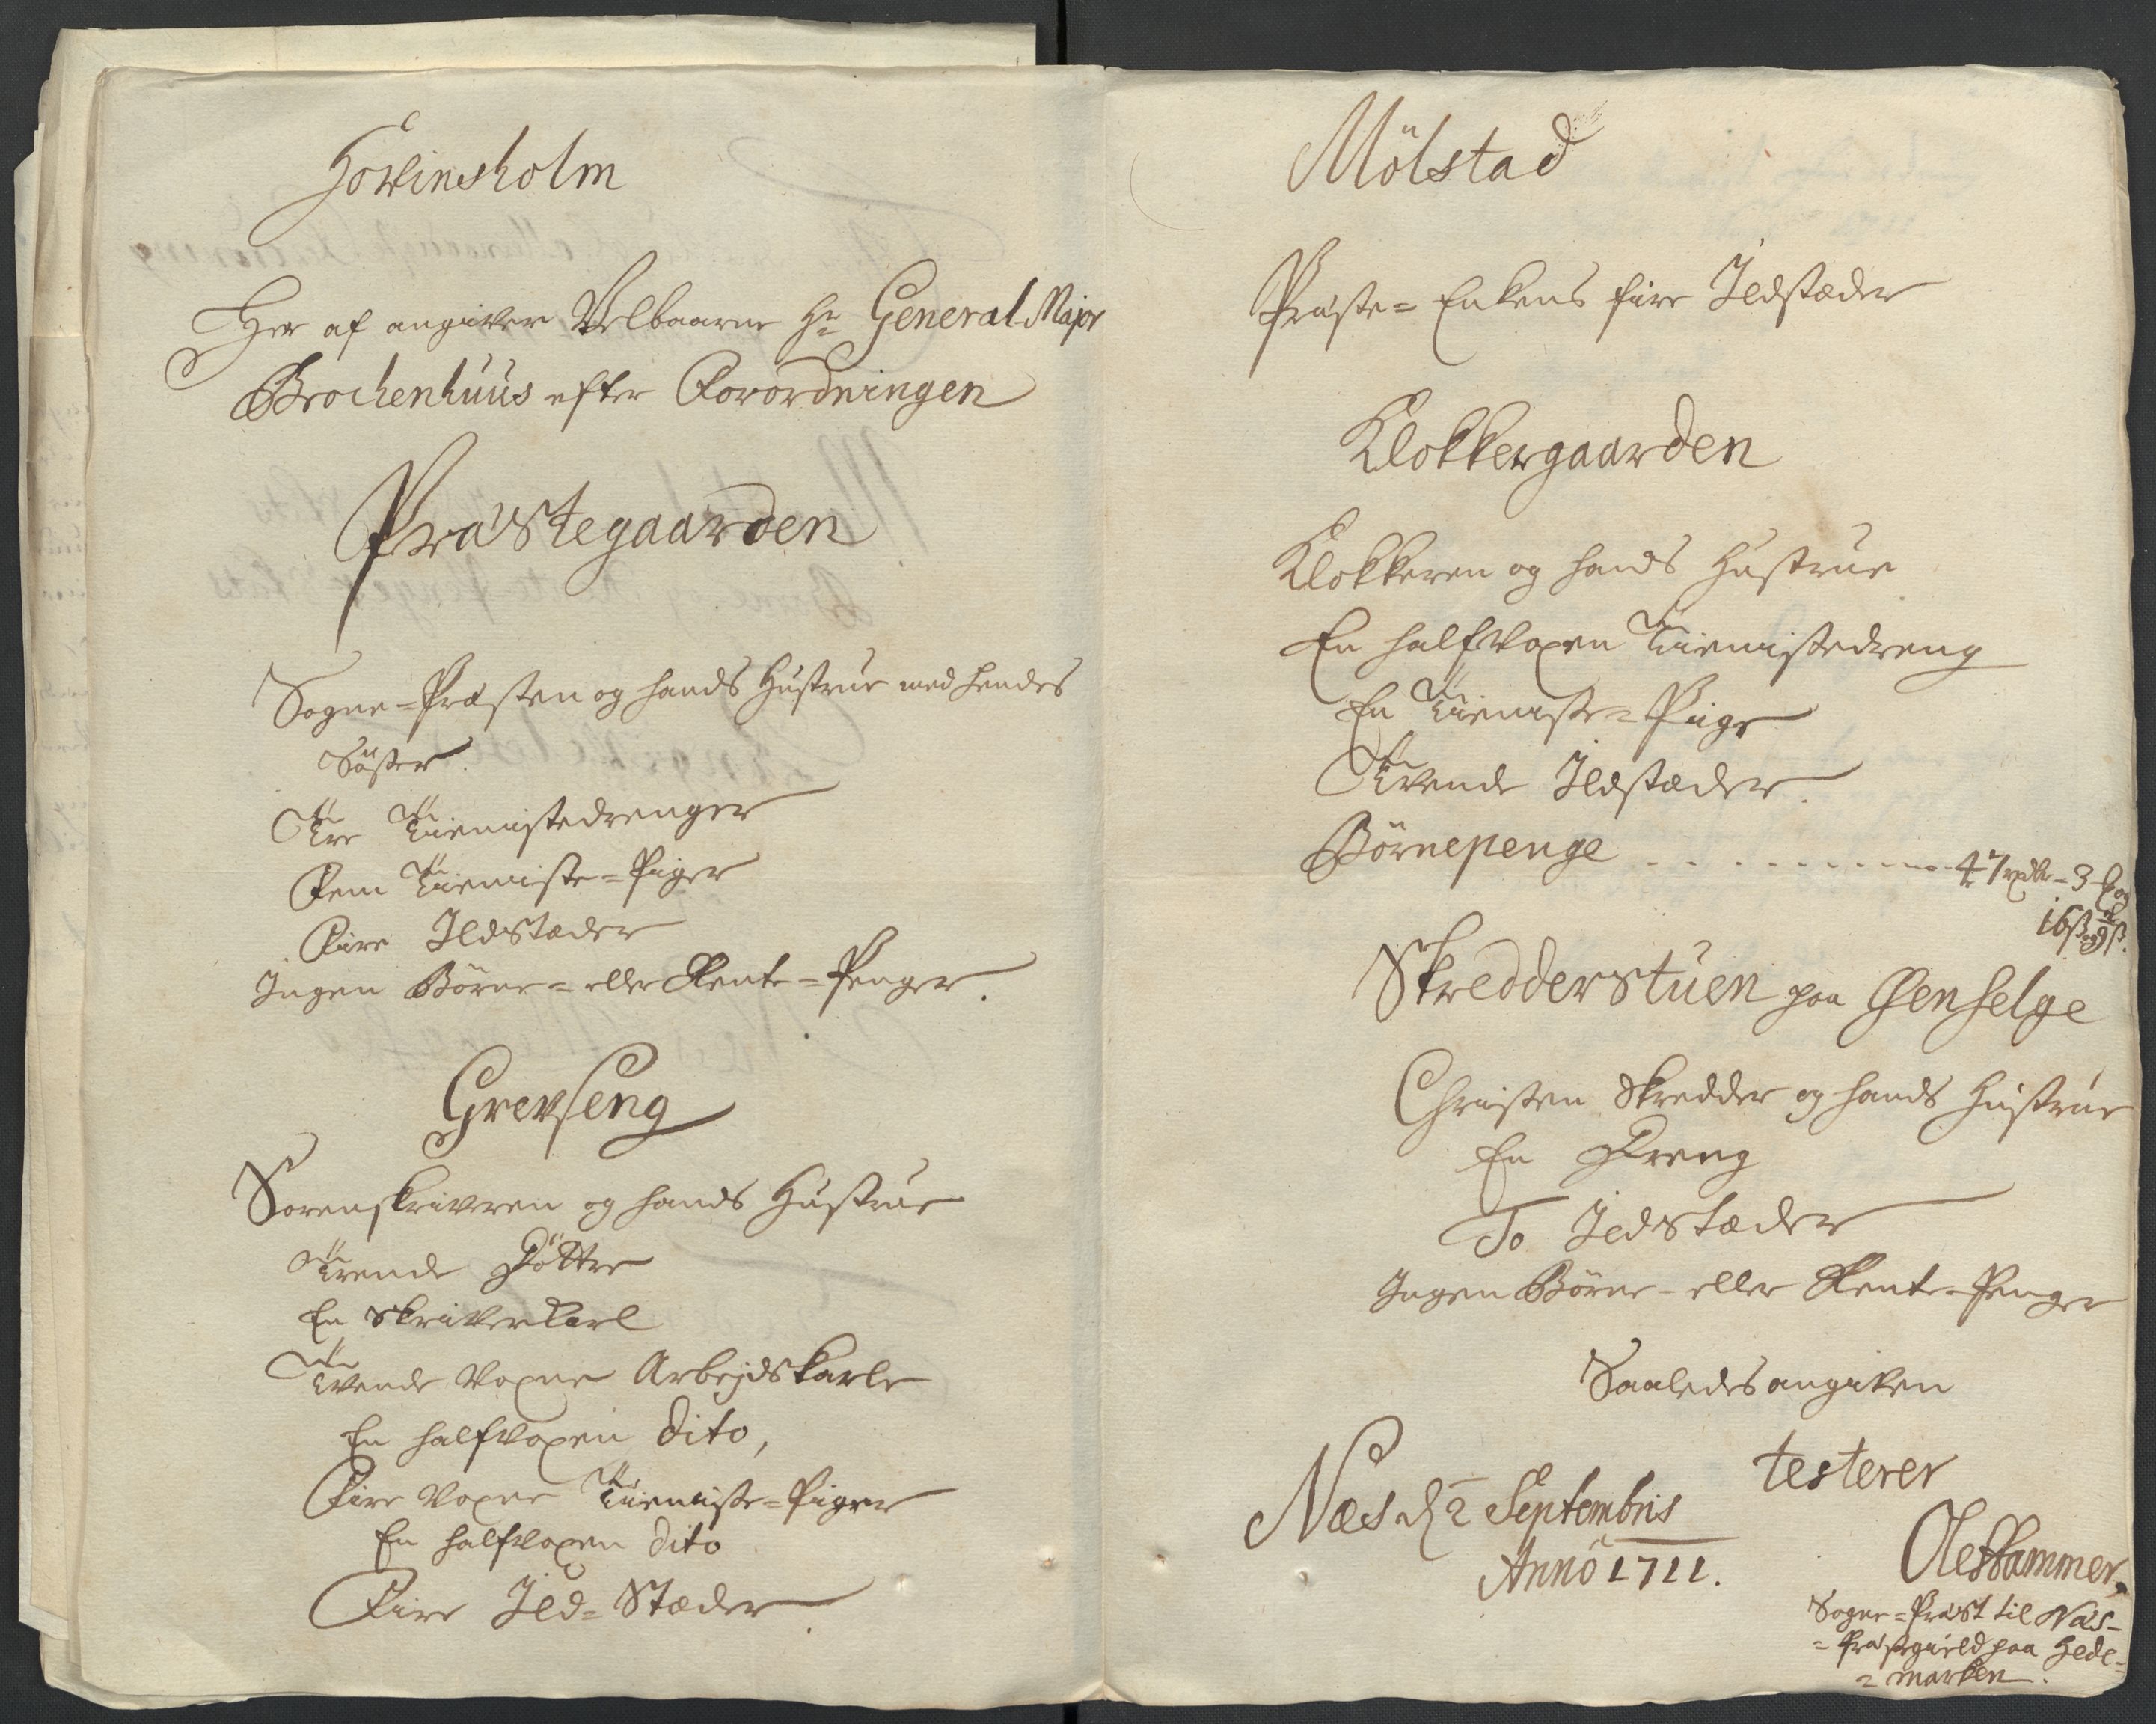 Hovinsholm
Her af angiver Velbaarne Hr General-Major
Brochenhuus efter Forordningen
Præstegaarden
Sogne-Præsten og hands Hustrue med hendes
Söster
Tre Tienistedrenger
Fem Tieniste-Piger
Fire Ildstæder
Ingen Börne- eller Rente-Penger.
Grevseng
Sorenskriveren og hands Hustrue
Trende Döttre
En Skriverkarl
Tvende voxne Arbejdskarle
En halfvoxen dito,
Fire voxne Tieniste-Piger
En halfvoxen dito
Fire Ild-Stæder.
Mölstad
Præste-Enkens fire Ildstæder
Klokkergaarden
Klokkeren og hands Hustrue
En halfvoxen Tienistedreng
En Tieniste-Pige
Tvende Ildstæder.
Börnepenge - - - - - - - - - 47 rdlr - 3 og
16 ß 9 ß.
Skredderstuen paa Henselge
Christen Skredder og hands Hustrue
En Dreng
To Ildstæder
Ingen Börne- eller Rente-Penger
Saaledes angiven
testerer
Næs d 2 Septembris
Anno 1711.
Ole Hammer,
Sogne-Præst til Næs-
=Præstegield paa Hede-
=marken.